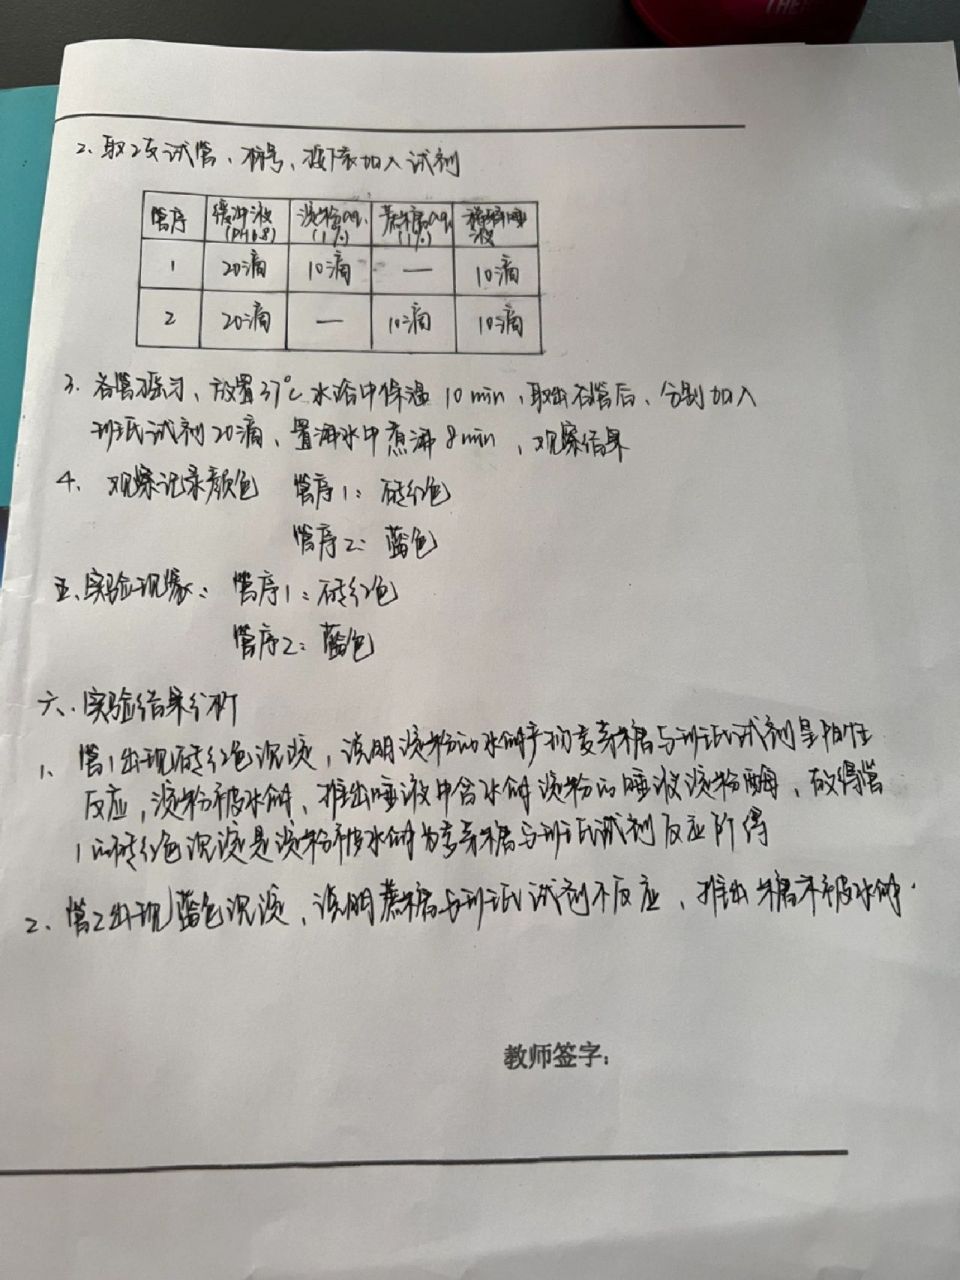 2、取2支试管、标号、按下表加入试剂
管序 缓冲液 淀粉aq. 蔗糖aq. 稀释唾
(pH6.8) (1%) (1%) 液
1 20滴 10滴 — 10滴
2 20滴 — 10滴 10滴
3. 各管摇匀、放置37℃水浴中保温 10 min、取出各管后、分别加入
班氏试剂20滴、置沸水中煮沸8min、观察结果
4、观察记录颜色 管序1: 砖红色
管序2: 蓝色
五、实验现象: 管序1: 砖红色
管序2: 蓝色
六、实验结果分析
1、管1出现砖红色沉淀,说明淀粉的水解产物麦芽糖与班氏试剂呈阳性
反应,淀粉被水解、推出唾液中含水解淀粉的唾液淀粉酶、故得管
1的砖红色沉淀是淀粉被水解为麦芽糖与班氏试剂反应所得
2、管2出现蓝色沉淀,说明蔗糖与班氏试剂不反应、推出 糖不被水解.
教师签字: